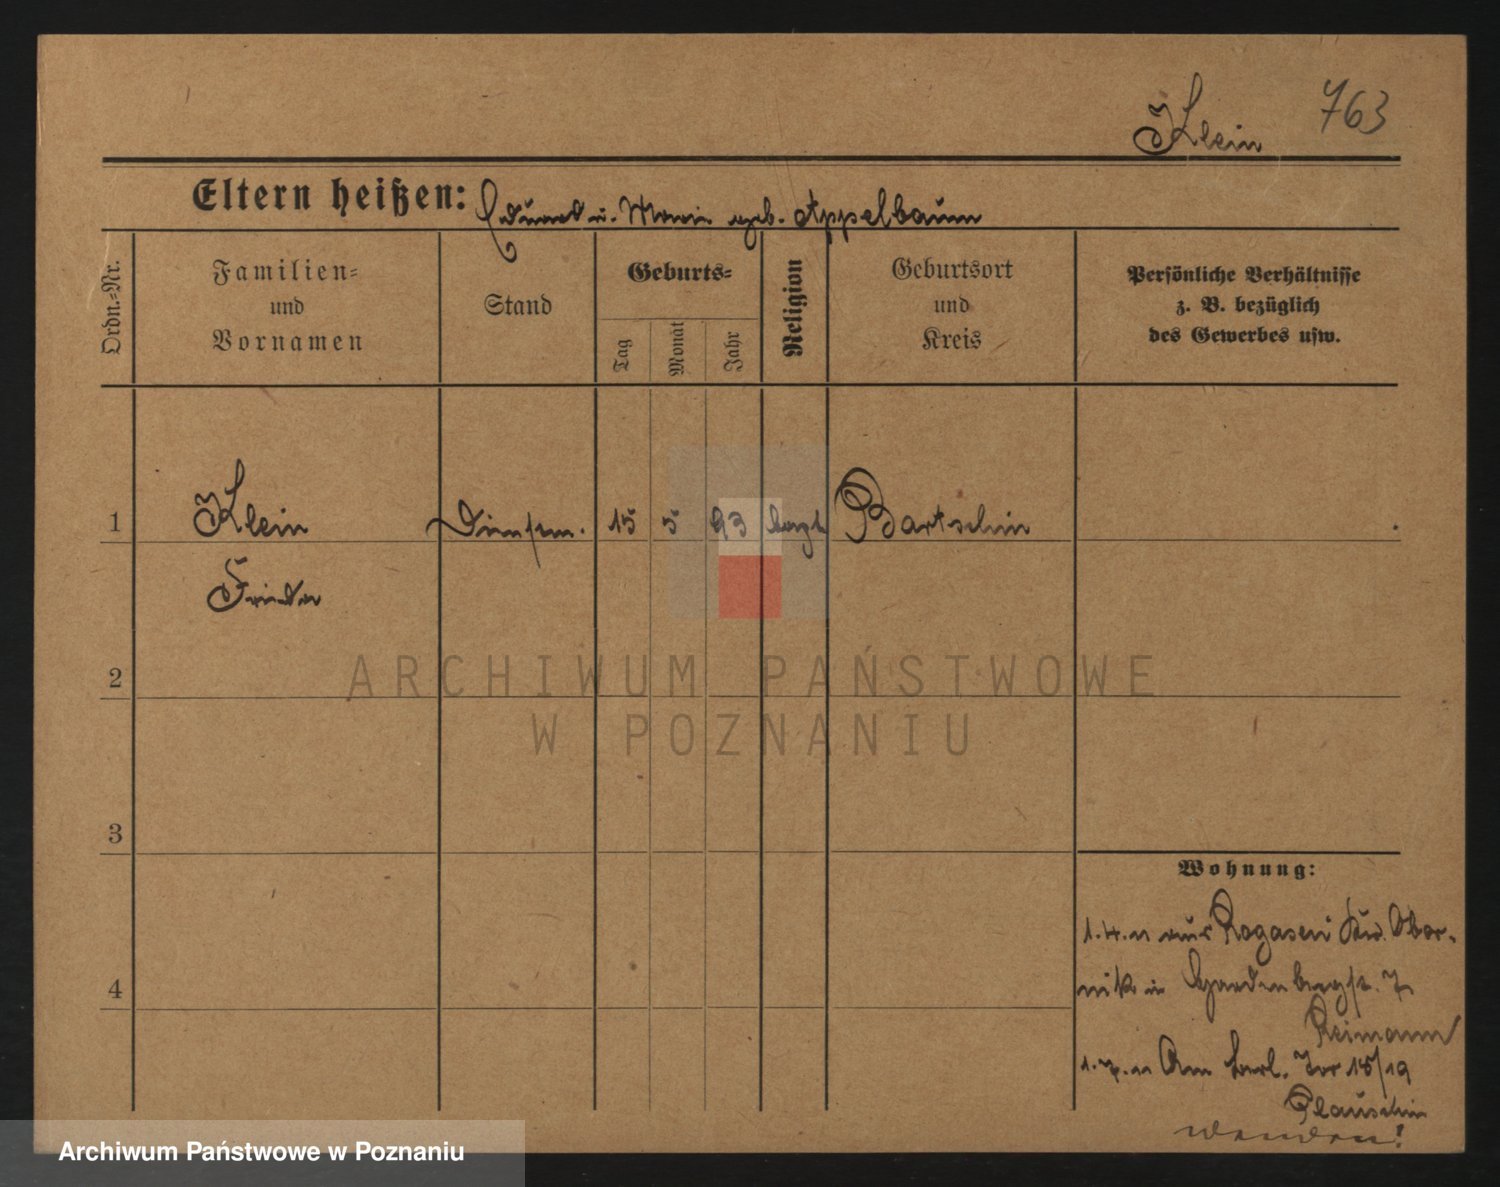 Klein 763
Eltern heißen: Eduard u. Marie geb. Appelbaum
Ordn.-Nr.
Familien-
und
Vornamen
Stand
Geburts-
Tag
Monat
Jahr
Religion
Geburtsort
und
Kreis
Persönliche Verhältnisse
z. B. bezüglich
des Gewerbes usw.
1 Klein Dienstm. 15 5 93 Bartschin
Frieda
2
3
4
Wohnung:
1.4.11 aus Rogasen Kr. Obor-
nik in
Reimann
1.7.11 Am Berl. Tor 18/19
wenden!
ARCHIWUM PAŃSTWOWE
W POZNANIU
Archiwum Państwowe w Poznaniu